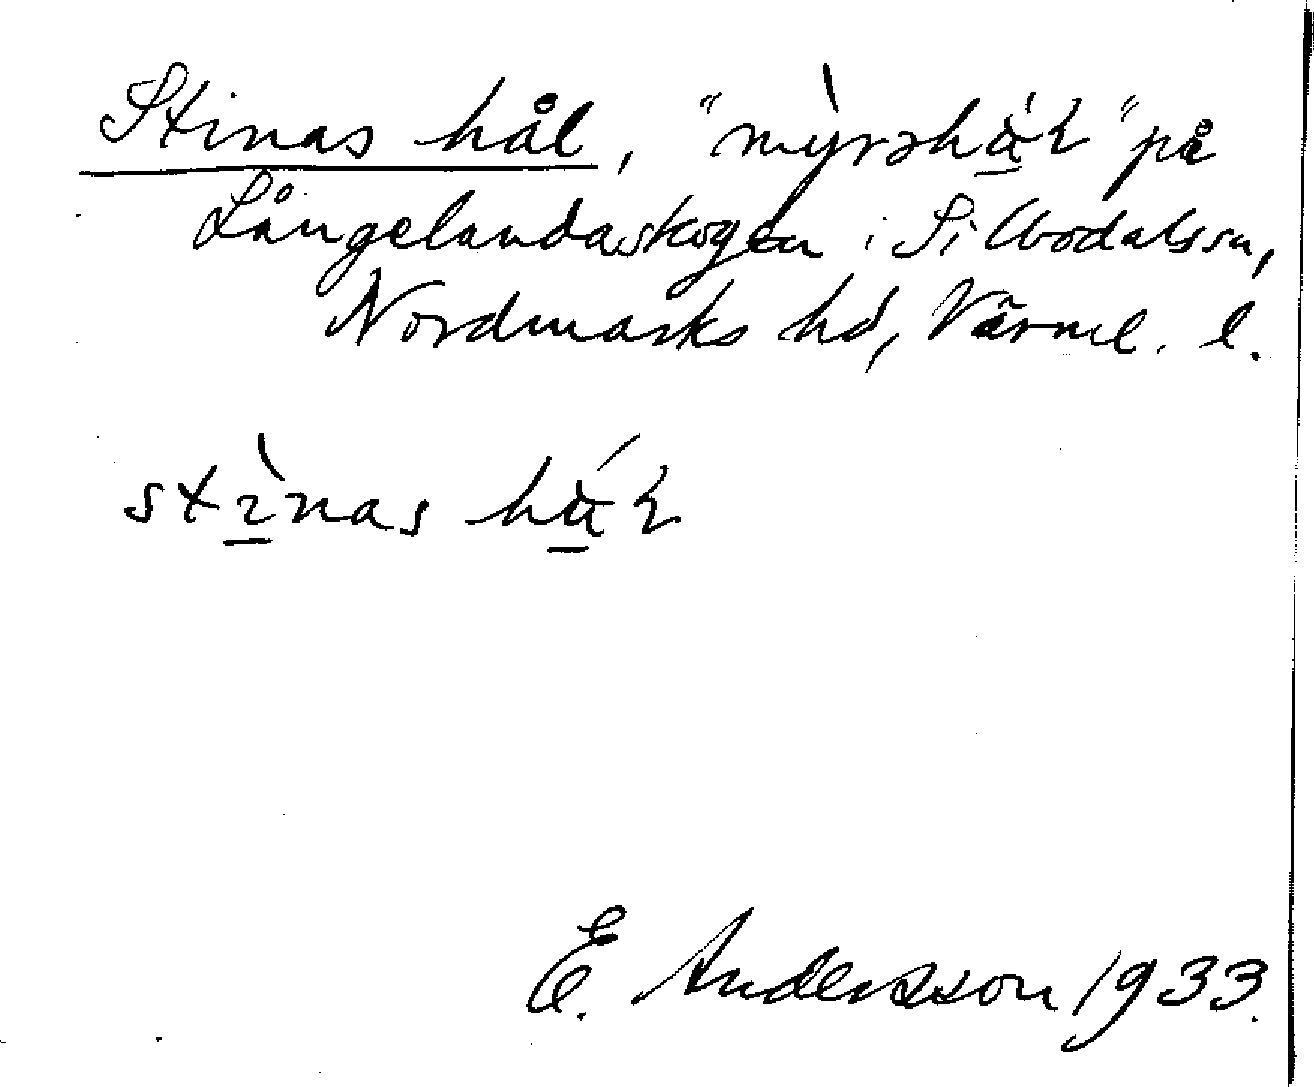 Stinas hål, "my̆̀rəhά̲ɽ" på
Långelandaskogen i Silbodals sn,
Nordmarks hd, Värml. l.
stı̲̀nas hά̲ɽ
E. Andersson 1933.